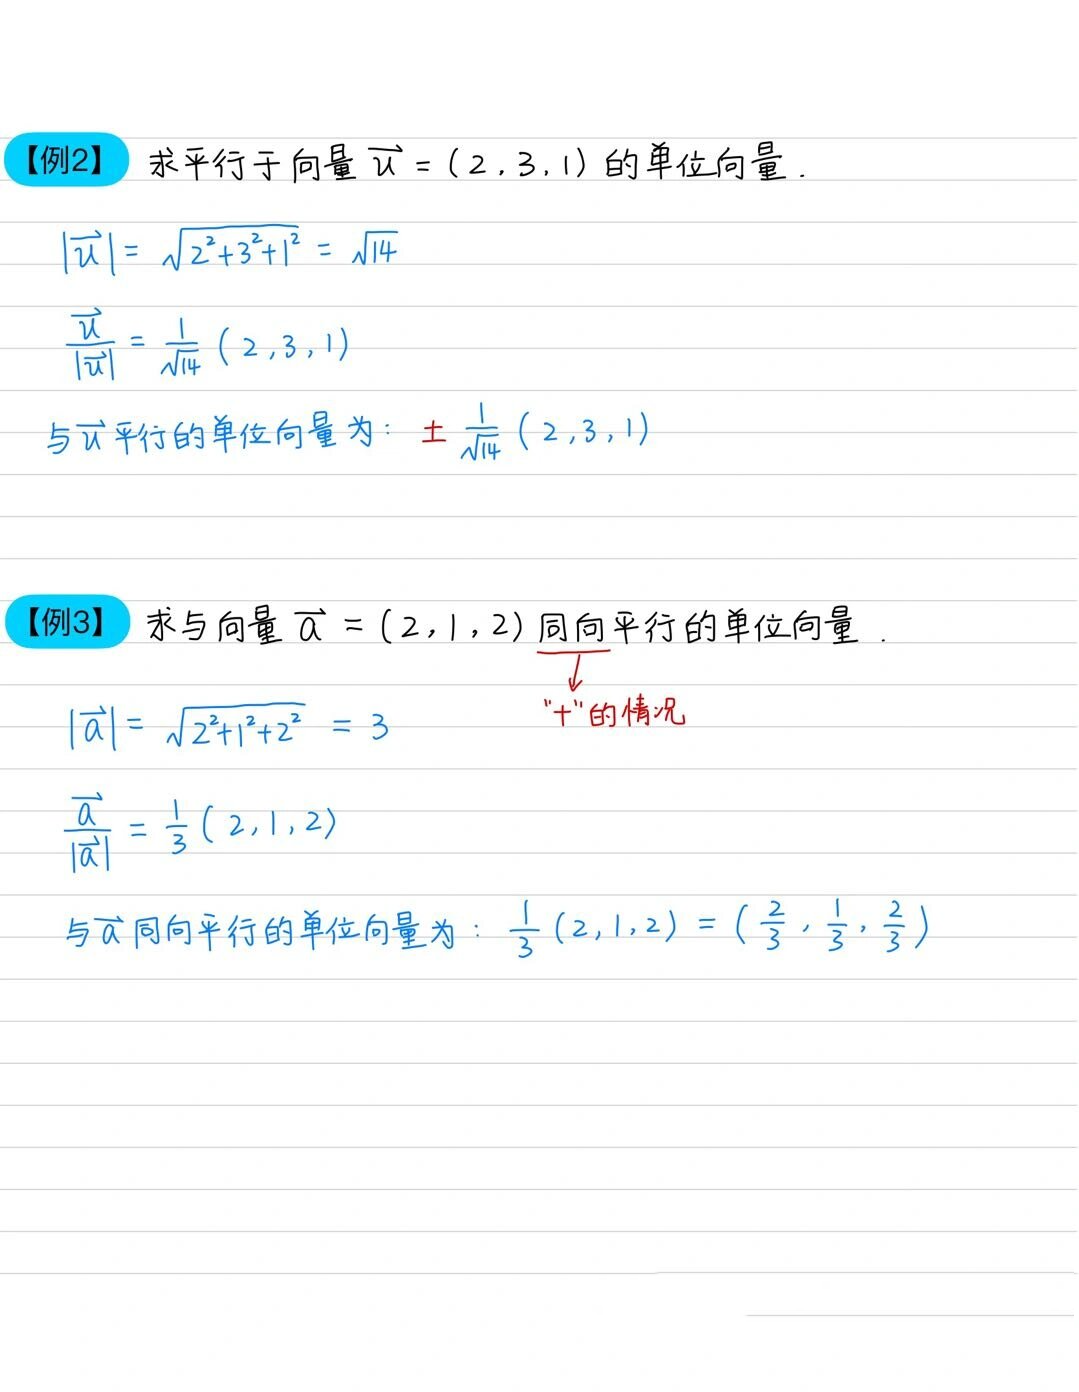 【例2】 求平行于向量 u⃗ = (2, 3, 1) 的单位向量.
|u⃗| = √(2²+3²+1²) = √14
u⃗/|u⃗| = 1/√14 (2, 3, 1)
与u⃗平行的单位向量为: ± 1/√14 (2, 3, 1)
【例3】 求与向量 a⃗ = (2, 1, 2) 同向平行的单位向量.
"+"的情况
|a⃗| = √(2²+1²+2²) = 3
a⃗/|a⃗| = 1/3 (2, 1, 2)
与a⃗同向平行的单位向量为: 1/3 (2, 1, 2) = (2/3, 1/3, 2/3)